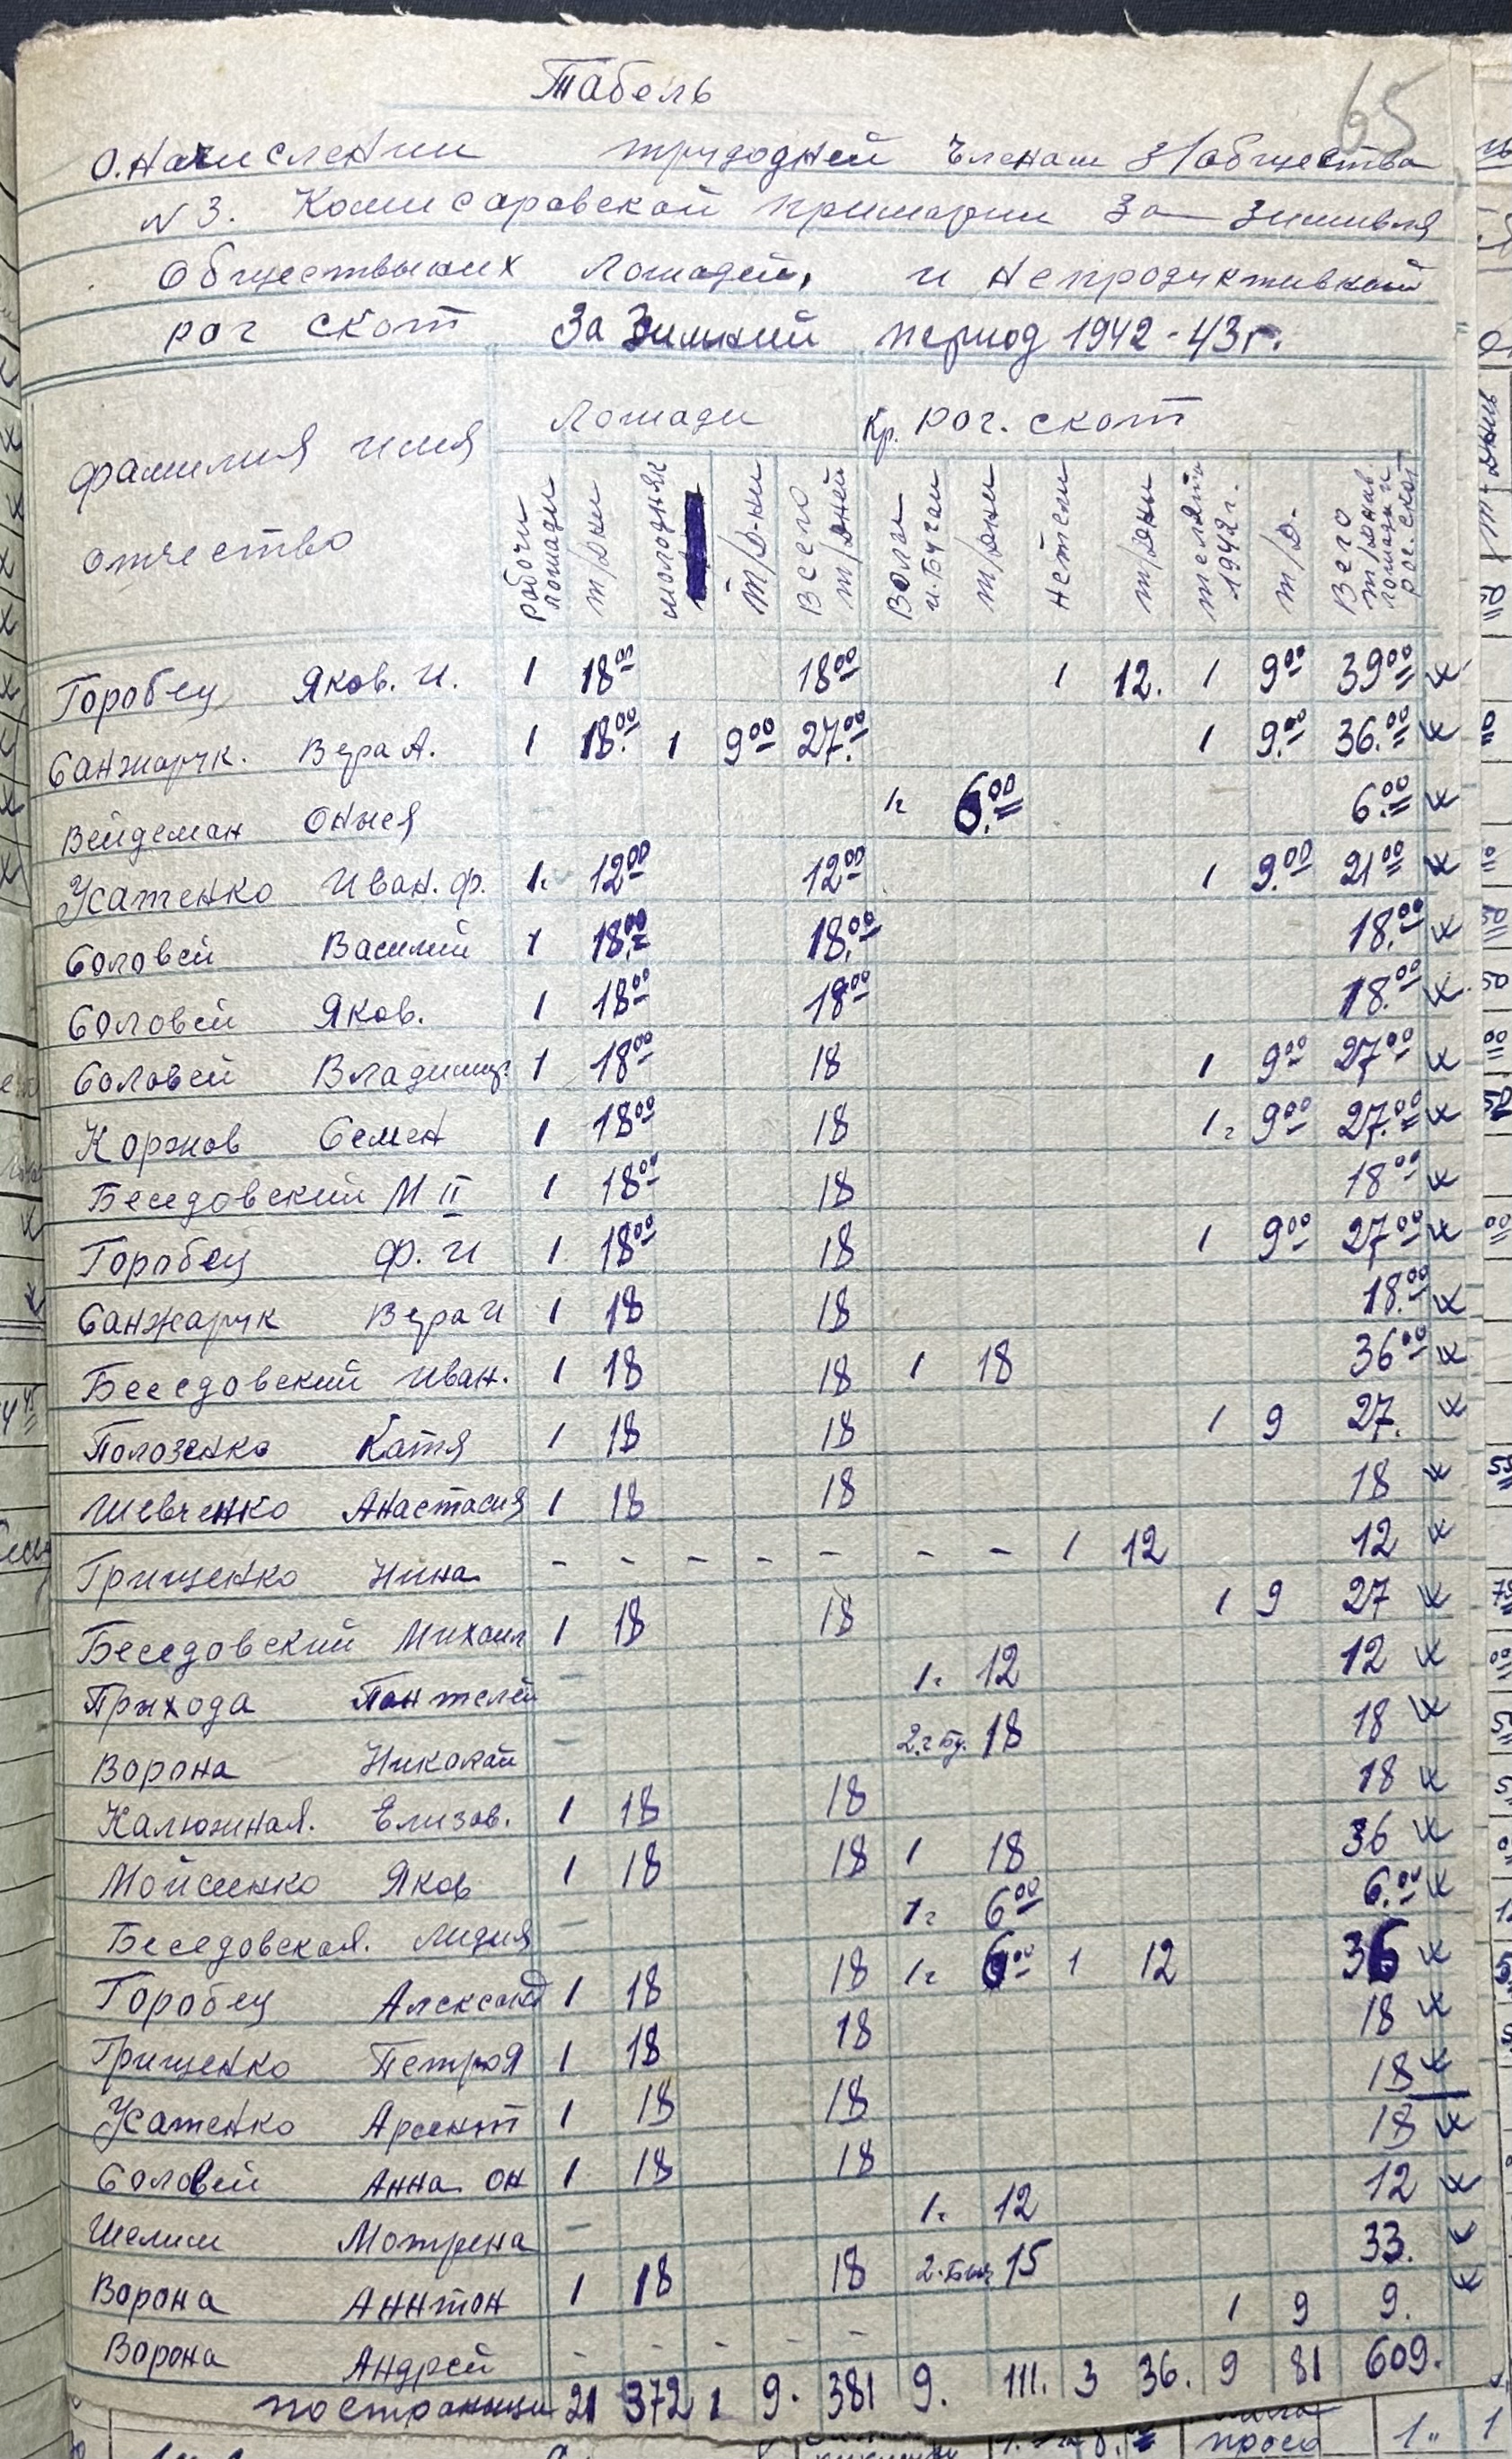 65
Табель
О. Начислении трудодней членам з/общества
N 3. Комисаровской примарии за зимивля
Обществыних лошадей, и непродуктивной
рог скот За Зимний период 1942-43г.
фамилия имя отчество
Лошади
Кр. рог. скот
рабочи лошади
т/дни
молодняк
т/д-ни
Всего т/дней
Волы и.Бугаи
т/дни
нетели
т/дни
телята 1942г.
т/д.
Всего т/днов лошади рог. скот
Горобец Яков. И. 1 18 00 18 00 1 12. 1 9 00 39 00
Санжарук. Вера А. 1 18.00 1 9 00 27.00 1 9.00 36.00
Вейдеман Онися 1г 6.00 6.00
Усатенко Иван. Ф. 1. 12 00 12 00 1 9.00 21 00
Соловей Василий 1 18.00 18.00 18.00
Соловей Яков. 1 18 00 18 00 18.00
Соловей Владимир 1 18 00 18 1 9 00 27 00
Коржов Семен 1 18 00 18 1г 9 00 27.00
Беседовский М II 1 18 00 18 18 00
Горобец Ф. И 1. 18 00 18 1 9 00 27 00
Санжарук Вера И 1 18 18 18.00
Беседовский Иван. 1 18 18 1 18 36 00
Полозенко Катя 1 18 18 1 9 27.
Шевченко Анастасия 1 18 18 18
Грищенко Нина - - - - - - - 1 12 12
Беседовский Михаил 1 18 18 1 9 27
Прихода Пантелей - 1. 12 12
Ворона Николай - 2.г Бу. 18 18
Калюжная. Елизов. 1 18 18 18
Мойсеенко Яков 1 18 18 1 18 36
Беседовская. Лидия - 1г 6 00 6.00
Горобец Александ 1 18 18 1г 6 00 1 12 36
Грищенко Петроя 1 18 18 18
Усатенко Арсент 1 18 18 18
Соловей Анна он 1. 18 18 18
Шелим Мотрена - 1. 12 12
Ворона Аннтон 1 18 18 2. Быч 15 33.
Ворона Андрей - - - - - 1 9 9.
по странице 21 372 1 9. 381 9. 111. 3 36. 9 81 609.